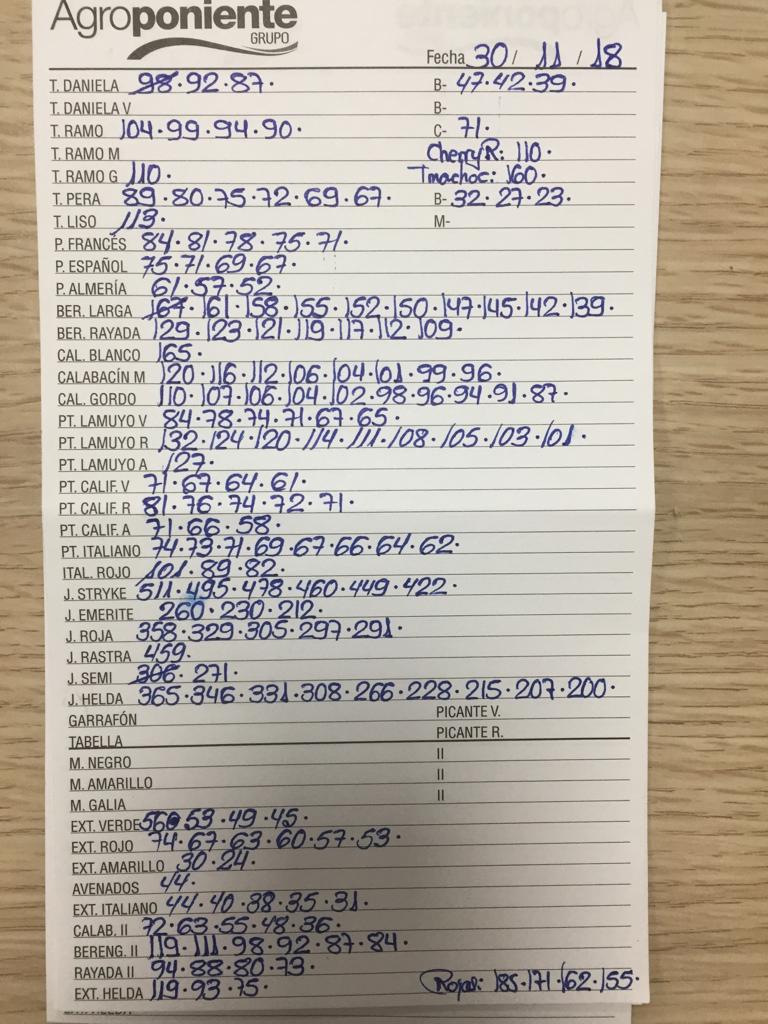 Agroponiente
GRUPO
Fecha 30 / 11 / 18
T. DANIELA 98·92·87· B- 47·42·39·
T. DANIELA V B-
T. RAMO 104·99·94·90· C- 71·
T. RAMO M Cherry R: 110·
T. RAMO G 110· Tmachoc: 160·
T. PERA 89·80·75·72·69·67· B- 32·27·23·
T. LISO 113· M-
P. FRANCÉS 84·81·78·75·71·
P. ESPAÑOL 75·71·69·67·
P. ALMERÍA 61·57·52·
BER. LARGA 167·161·158·155·152·150·147·145·142·139·
BER. RAYADA 129·123·121·119·117·112·109·
CAL. BLANCO 165·
CALABACÍN M 120·116·112·106·104·101·99·96·
CAL. GORDO 110·107·106·104·102·98·96·94·91·87·
PT. LAMUYO V 84·78·74·71·67·65·
PT. LAMUYO R 132·124·120·114·111·108·105·103·101·
PT. LAMUYO A 127·
PT. CALIF. V 71·67·64·61·
PT. CALIF. R 81·76·74·72·71·
PT. CALIF. A 71·66·58·
PT. ITALIANO 74·73·71·69·67·66·64·62·
ITAL. ROJO 101·89·82·
J. STRYKE 511·495·478·460·449·422·
J. EMERITE 260·230·212·
J. ROJA 358·329·305·297·291·
J. RASTRA 459·
J. SEMI 306·271·
J. HELDA 365·346·331·308·266·228·215·207·200·
GARRAFÓN PICANTE V.
TABELLA PICANTE R.
M. NEGRO II
M. AMARILLO II
M. GALIA II
EXT. VERDE 56 53·49·45·
EXT. ROJO 74·67·63·60·57·53·
EXT. AMARILLO 30·24·
AVENADOS 44·
EXT. ITALIANO 44·40·38·35·31·
CALAB. II 72·63·55·48·36·
BERENG. II 119·111·98·92·87·84·
RAYADA II 94·88·80·73·
EXT. HELDA 119·93·75· 185·171·162·155·